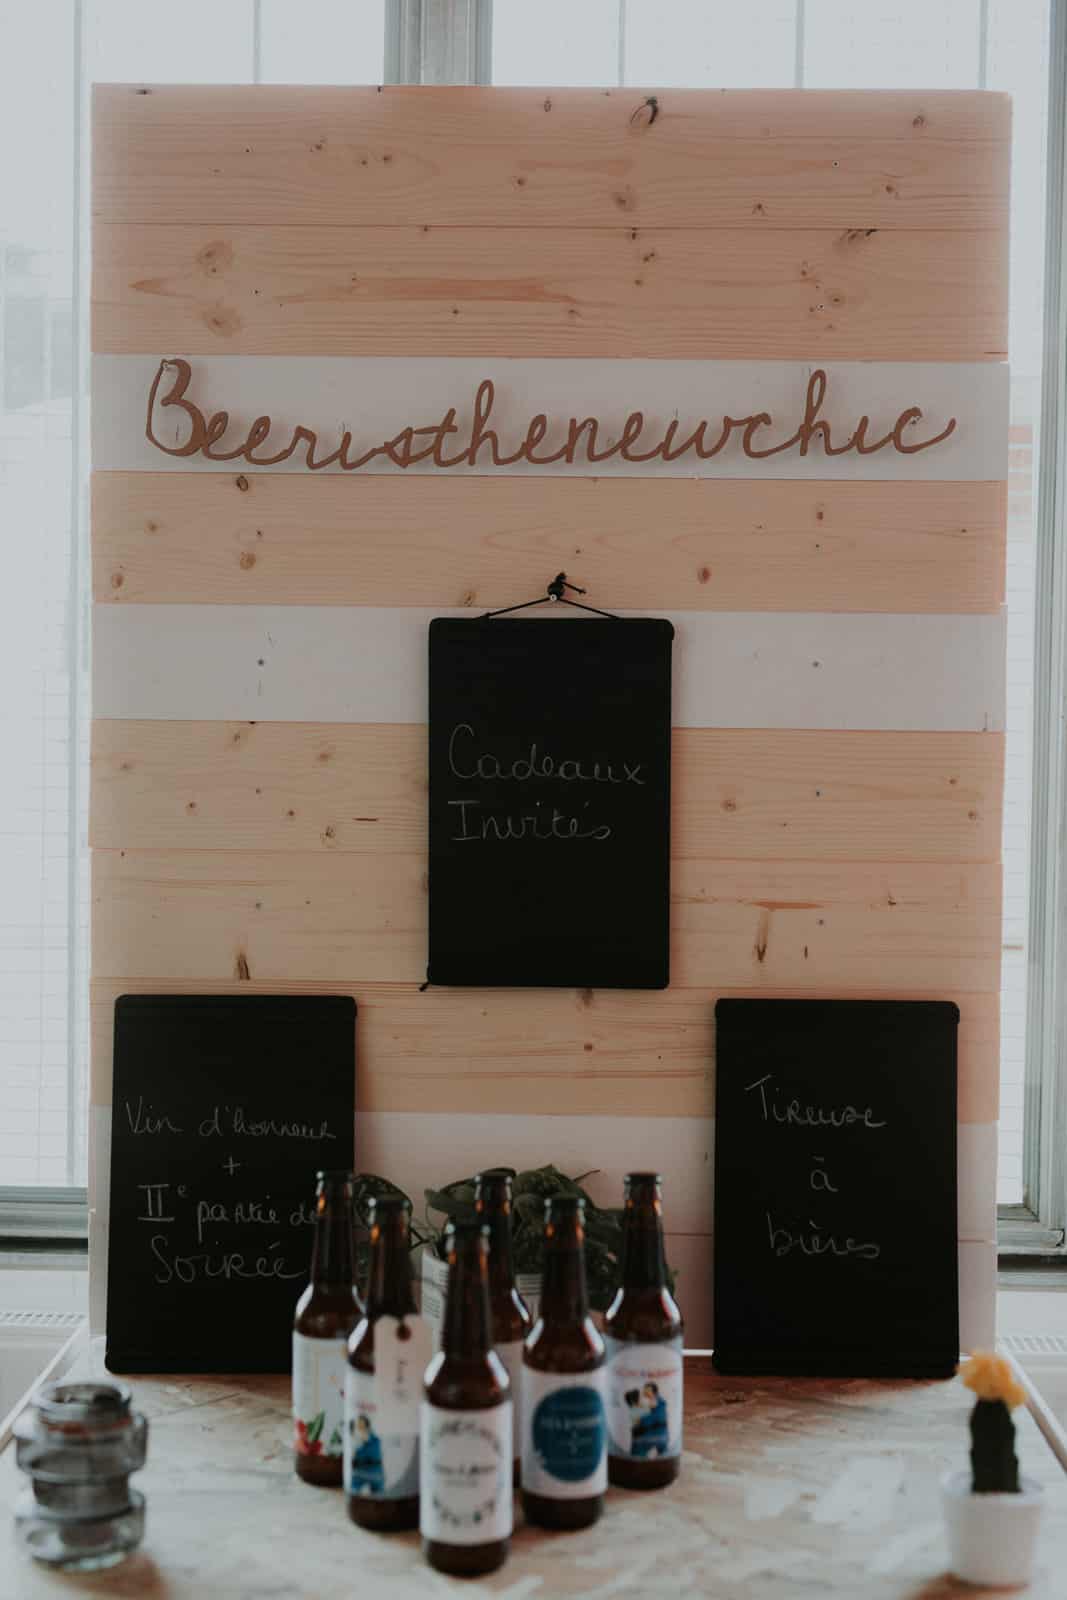 Beeristhenewchic
Cadeaux
Invités
Vin d'honneur
+
IIe partie de
Soirée
Tireuse
à
bières